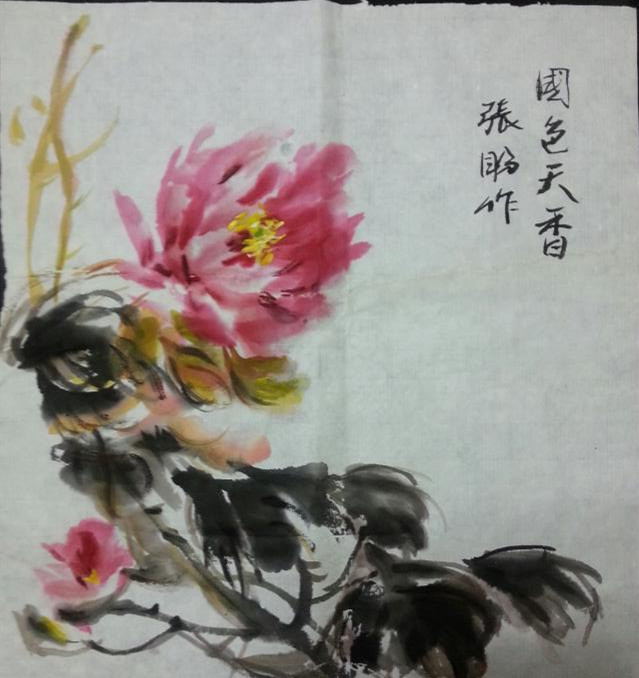 國色天香
張盼作